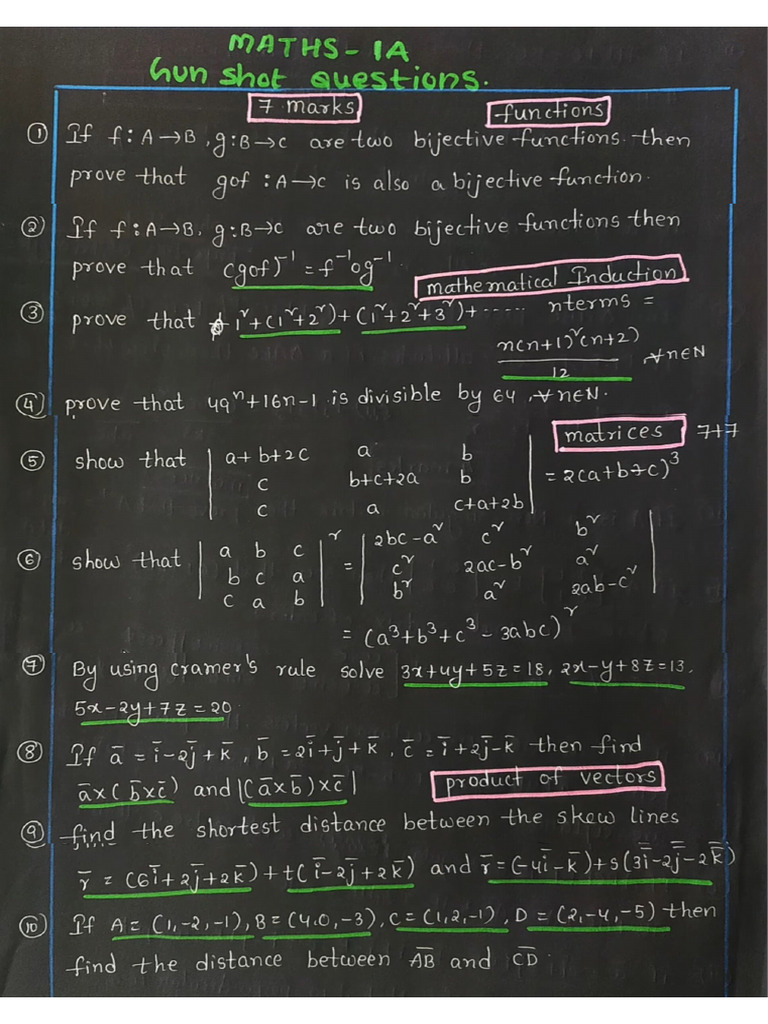 MATHS - 1A
Gun shot questions.
7 marks
functions
① If f : A→B, g : B→C are two bijective functions. then
prove that gof : A→C is also a bijective function.
② If f : A→B, g : B→C are two bijective functions then
prove that (gof)⁻¹ = f⁻¹og⁻¹.
mathematical Induction
③ prove that 1² + (1²+2²) + (1²+2²+3²) + ..... nterms =
n(n+1)²(n+2)
12
, ∀n∈N
④ prove that 49ⁿ+16n-1 is divisible by 64, ∀n∈N.
matrices 7+7
⑤ show that | a+b+2c a b |
| c b+c+2a b | = 2(a+b+c)³
| c a c+a+2b |
⑥ show that | a b c |² = | 2bc-a² c² b² |
| b c a | | c² 2ac-b² a² |
| c a b | | b² a² 2ab-c² |
= (a³+b³+c³-3abc)²
⑦ By using cramer's rule solve 3x+4y+5z=18, 2x-y+8z=13,
5x-2y+7z=20.
⑧ If ā = ī-2j̄+k̄, b̄ = 2ī+j̄+k̄, c̄ = ī+2j̄-k̄ then find
ā×(b̄×c̄) and |(ā×b̄)×c̄|
product of vectors
⑨ find the shortest distance between the skew lines
r̄ = (6ī+2j̄+2k̄)+t(ī-2j̄+2k̄) and r̄ = (-4ī-k̄)+s(3ī-2j̄-2k̄)
⑩ If A = (1,-2,-1), B = (4,0,-3), C = (1,2,-1), D = (2,-4,-5) then
find the distance between A̅B̅ and C̅D̅.